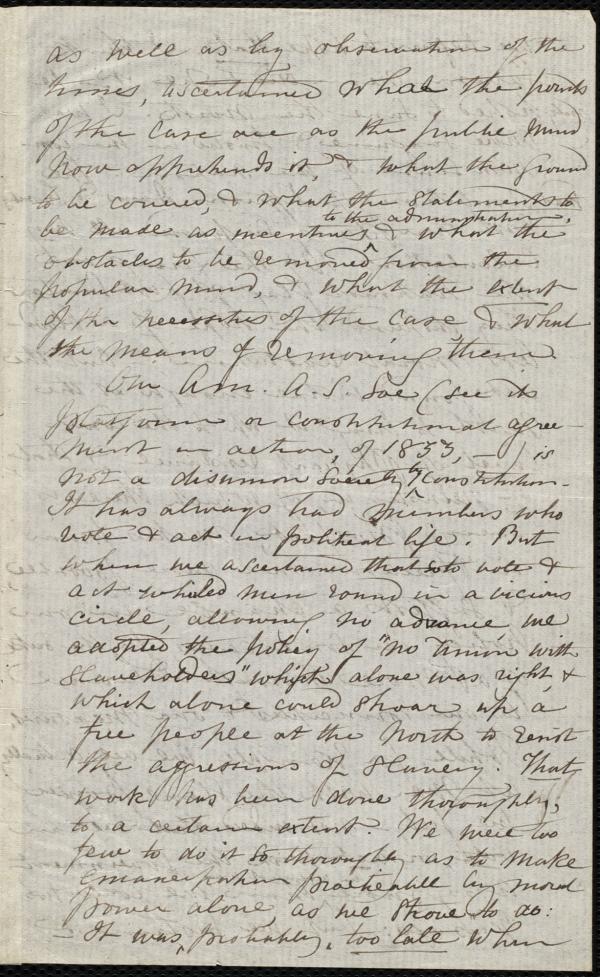 as well as by observation of the
times, ascertained what the points
of the case are as the public mind
now apprehends it, & what the ground
to be covered, & what the statements to
be made as incentives to the administration, & what the
obstacles to be removed from the
popular mind, & what the extent
of the necessities of the case & what
the means of removing them.
Our Am. A. S. Soc (see its
platform or constitutional agree-
ment in action, of 1833, —) is
not a disunion Society by Constitution.
It has always had members who
vote & act in political life. But
when we ascertained that so to vote &
act whirled men round in a vicious
circle, allowing no advance we
adopted the policy of "no Union with
Slaveholders" which alone was right, &
which alone could shoar up a
free people at the North to resist
the aggressions of Slavery. That
work has been done thoroughly,
to a certain extent. We were too
few to do it so thoroughly as to make
Emancipation practicable by moral
power alone, as we strove to do:
— It was, probably, too late when